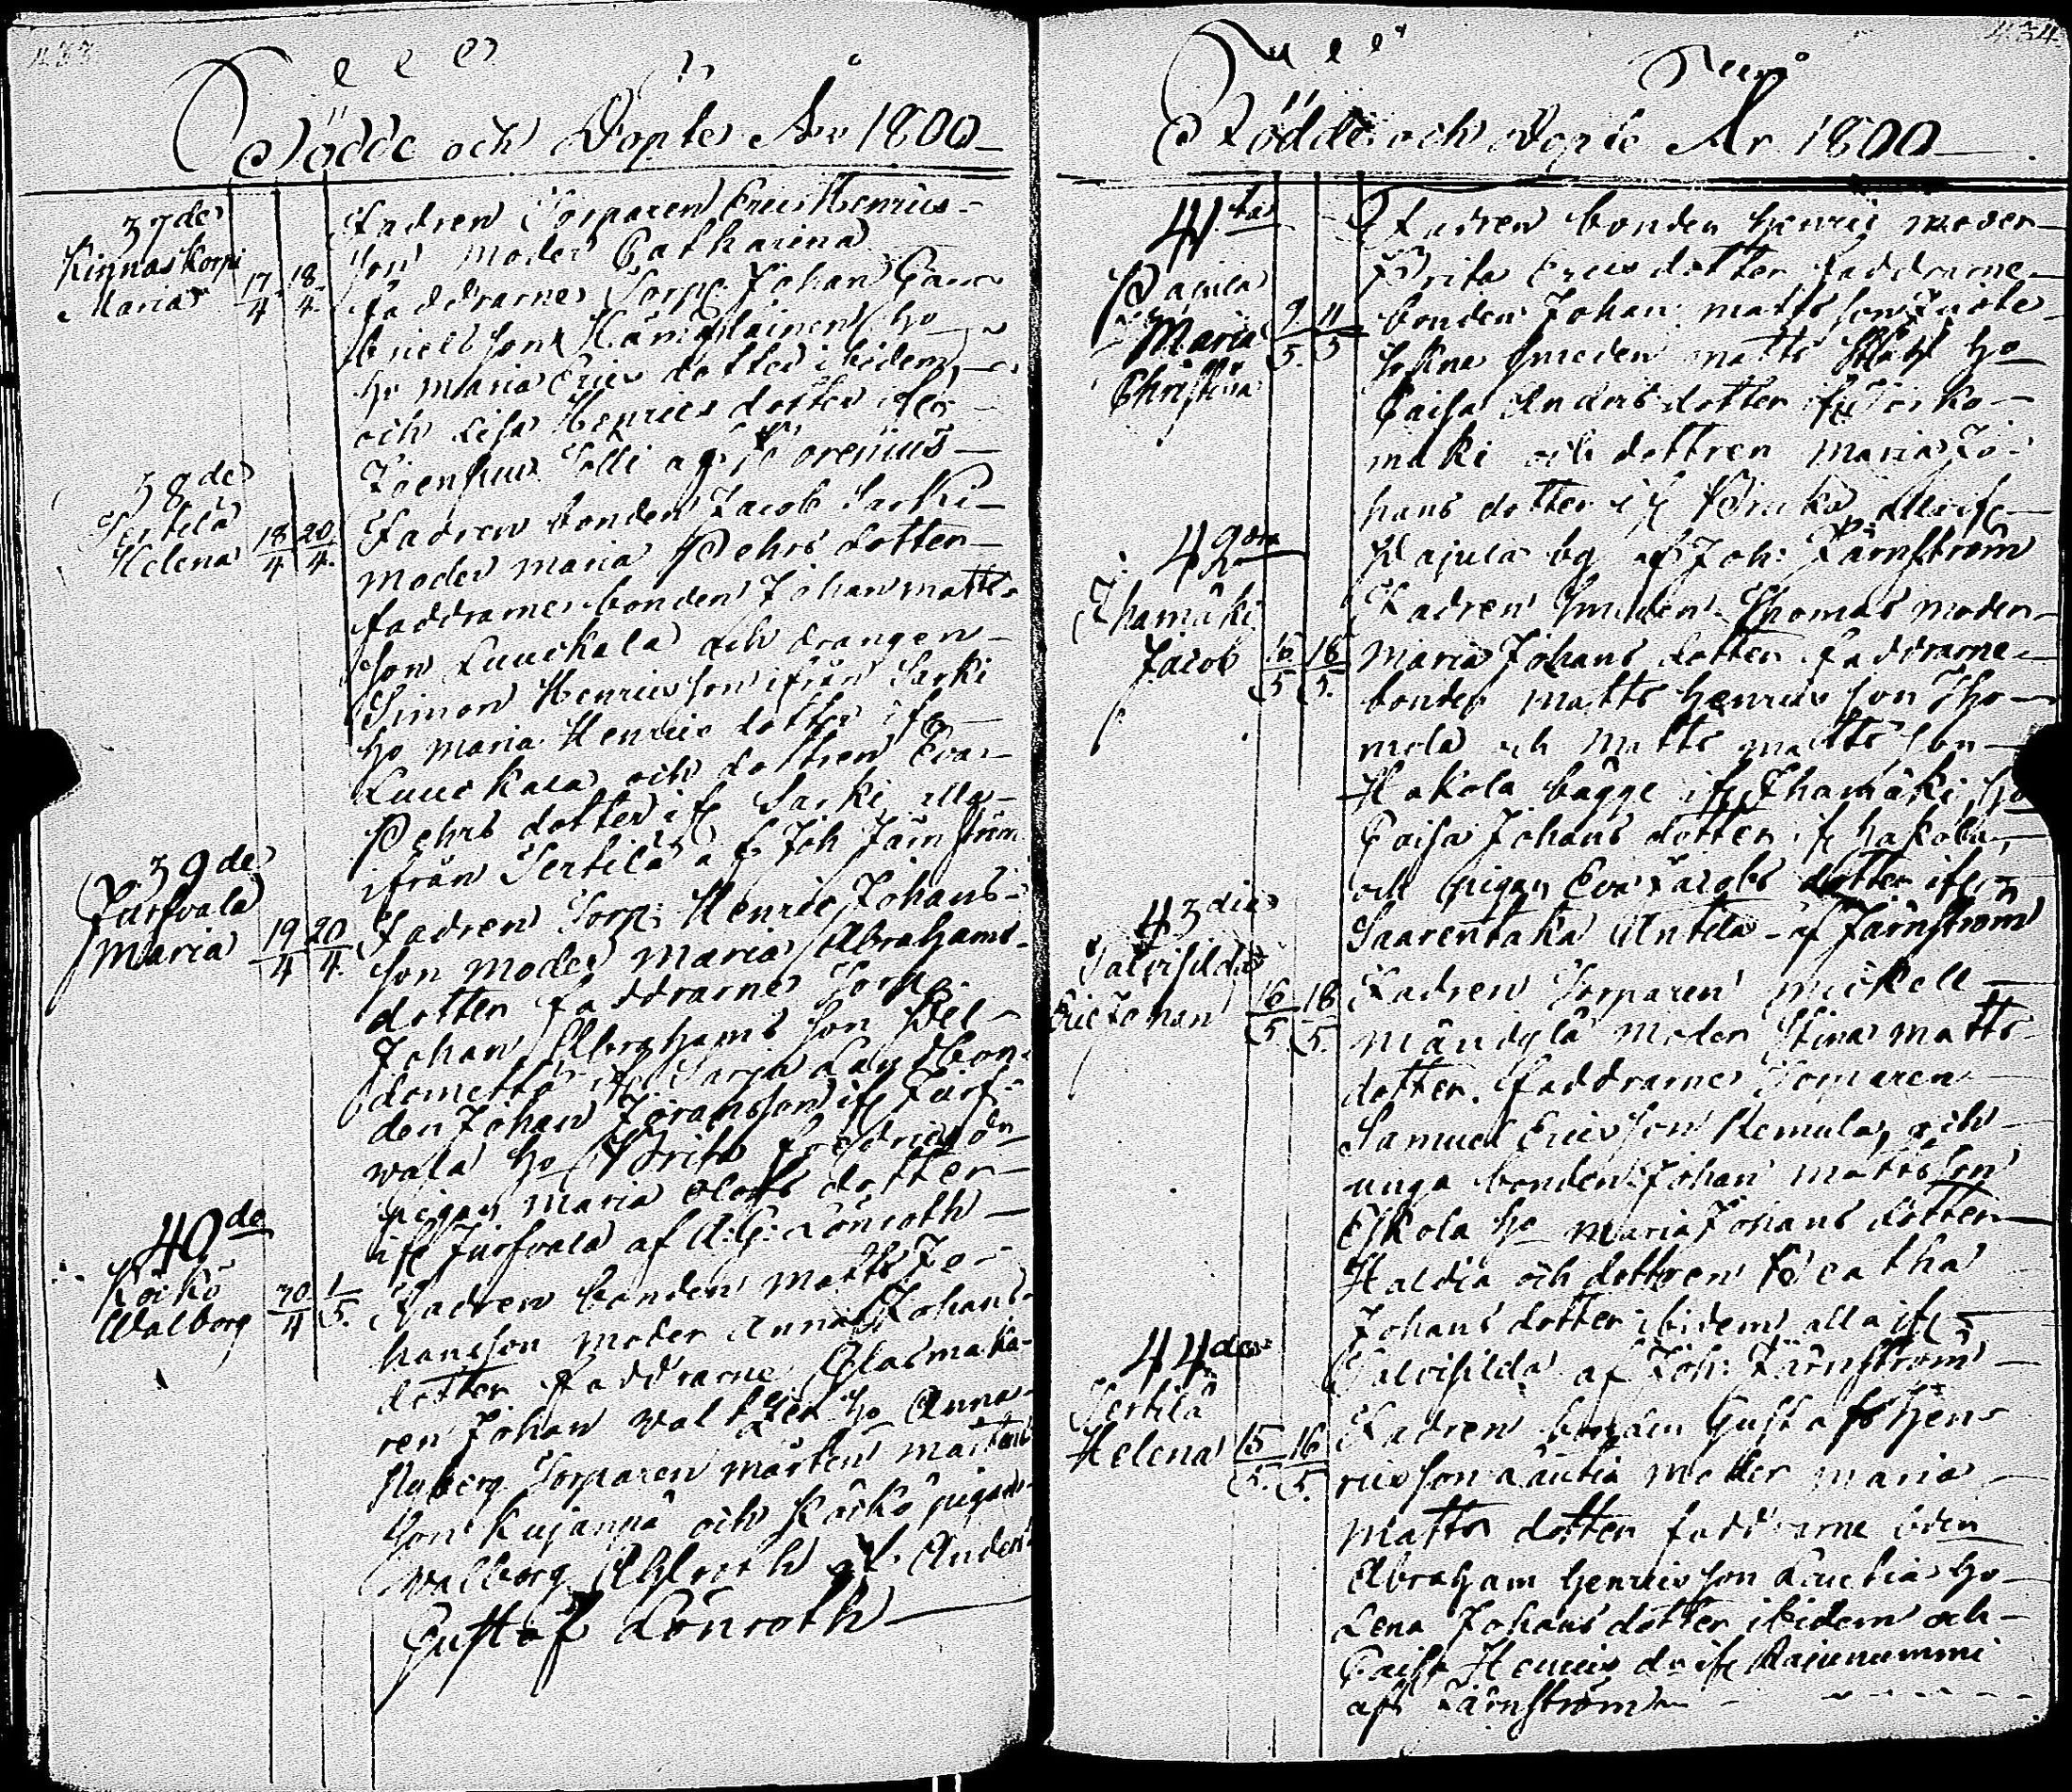 433
Födde och Döpte År 1800
37de
Kinnaskorpi
Maria 17/4 18/4
Fadren Torparen Eric Henrics-
son Moder Catharina
faddrarne Torp. Johan Gab-
rielsson Hämäläinen ho
ho Maria Erics dotter ibidem
och Lisa Henrics dotter ifr
Tolli af
38de
Sertilä
Helena 18/4 20/4
Fadren bonden Jacob Sarki
moder Maria Pehrs dotter
faddrarne bonden Johan Matts-
son Luuckala och drängen
Simon Henricsson ifrån Sarki
ho Maria Henrics dotter ifr
Luuckala och dottren Eva
Pehrs dotter ifr Sarki alla
ifrån Sertilä af Joh Järnström
39de
Turfvala
Maria 19/4 20/4
Fadren Torp. Henric Johans-
son moder Maria Abrahams-
dotter faddrarne Torp.
Johan Abrahams son
ifr Landbon-
den Johan Göransson ifr Turf-
wala ho Brita Fredricsdr
pigan Maria Olofs dotter
ifr Turfvala af A: G: Lönroth
40de
Köikö
Walborg 30/4 1/5
Fadren bonden Matts Jo-
hansson moder Anna Johans-
dotter faddrarne Glasmäka-
ren Johan ho Anna
Nyberg Torparen Mårten Mårtens
son Kujanpä och Köikö pigan
Walborg af Anders
Gustaf Lönroth
434
Födde och Döpte År 1800
41ta
Pajula
Maria 9/5 11/5
Christina
Fadren bonden Henric moder
Brita Erics dotter faddrarne
bonden Johan Mattsson
smeden Matts ho
Caisa Anders dotter ifr
mäki och dottren Maria Jo-
hans dotter ifr alla ifr
Pajula by af Joh: Järnström
42dra
Ihamäki
Jacob 16/5 18/5
Fadren Smeden Thomas moder
Maria Johans dotter faddrarne
bonden Matts Henricsson Tho-
mola och Matts Mattsson
Hakola bägge ifr Ihamäki, ho
Caisa Johans dotter ifr Hakola,
och pigan Eva Jacobs dotter ifr
Saarentaka Antila af Järnström
43die
Talvisilda
Eric Johan 16/5 18/5
Fadren Torparen Mickell
Mändylä moder Stina Matts
dotter. faddrarne Torparen
Samuel Ericsson Remula, och
unga bonden Johan Mattsson
Eskola ho Maria Johans dotter
Haldia och dottren Beatha
Johans dotter ibidem alla ifr
Talvisilda af Joh: Järnström
44de
Sertilä
Helena 15/5 16/5
Fadren bonden Gustaf Hen-
ricsson Lautia moder Maria
Matts dotter faddrarne bden
Abraham Henricsson Lautia ho
Lena Johans dotter ibidem och
Caisa Henrics dr ifr Rajennummi
af Järnström